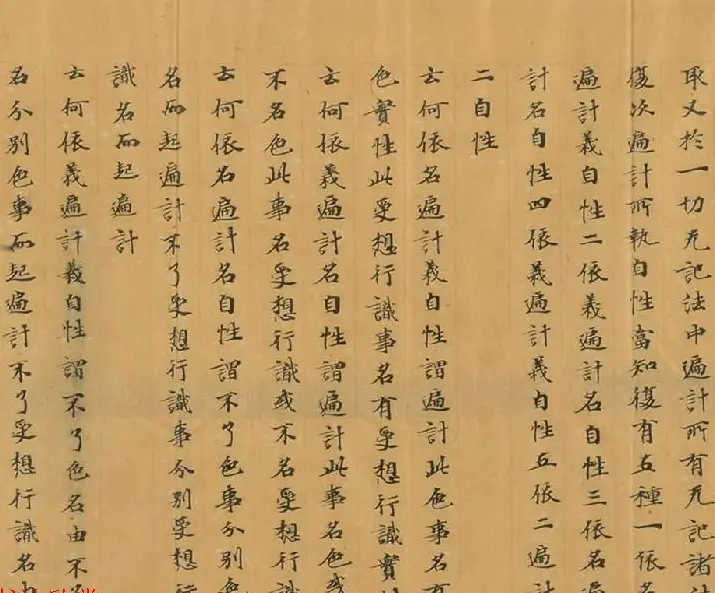 取又於一切无記法中遍計所有无記諸法
復次遍計所執自性當知復有五種一依名
遍計義自性二依義遍計名自性三依名遍
計名自性四依義遍計義自性五依二遍計
二自性
云何依名遍計義自性謂遍計此色事名有
色實性此受想行識事名有受想行識實
云何依義遍計名自性謂遍計此事名色或
不名色此事名受想行識或不名受想行識
云何依名遍計名自性謂不了色事分別色
名而起遍計不了受想行識事分別受想行
識名而起遍計
云何依義遍計義自性謂不了色名由不
名分別色事而起遍計不了受想行識名由